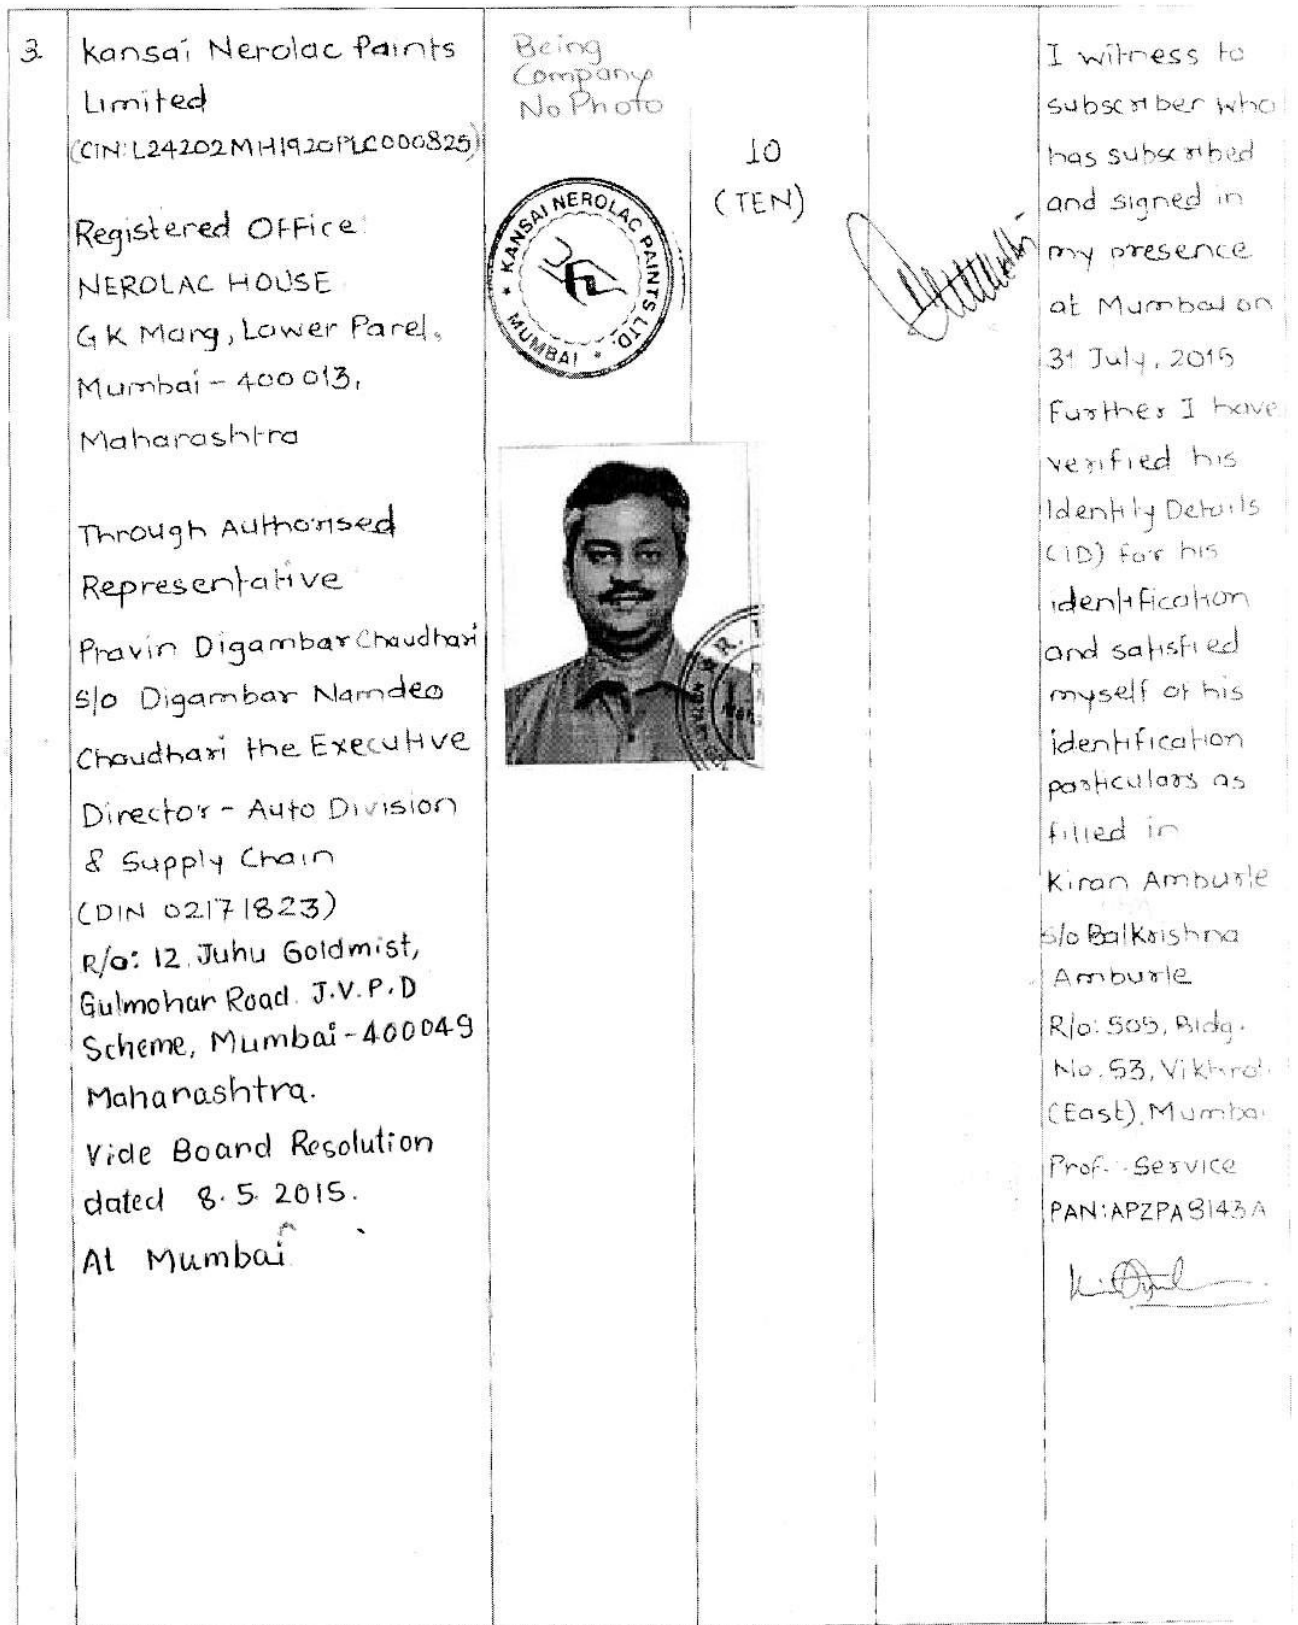 3.
Kansai Nerolac Paints
Limited
(CIN: L24202MH1920PLC000825)
Registered Office:
NEROLAC HOUSE
G K Marg, Lower Parel,
Mumbai - 400 013,
Maharashtra
Through Authorised
Representative
Pravin Digambar Chaudhari
S/o Digambar Namdeo
Chaudhari the Executive
Director - Auto Division
& Supply Chain
(DIN 02171823)
R/o: 12, Juhu Goldmist,
Gulmohar Road. J.V.P.D
Scheme, Mumbai - 400049
Maharashtra.
Vide Board Resolution
dated 8.5.2015.
At Mumbai
Being
Company
No Photo
KANSAI NEROLAC PAINTS LTD.
* MUMBAI *
10
(TEN)
I witness to
subscriber who
has subscribed
and signed in
my presence
at Mumbai on
31 July, 2015
Further I have
verified his
Identity Details
(ID) for his
identification
and satisfied
myself of his
identification
particulars as
filled in
Kiran Amburle
S/o Balkrishna
Amburle
R/o: 505, Bldg.
No. 53, Vikhroli
(East), Mumbai
Prof. - Service
PAN: APZPA8143A